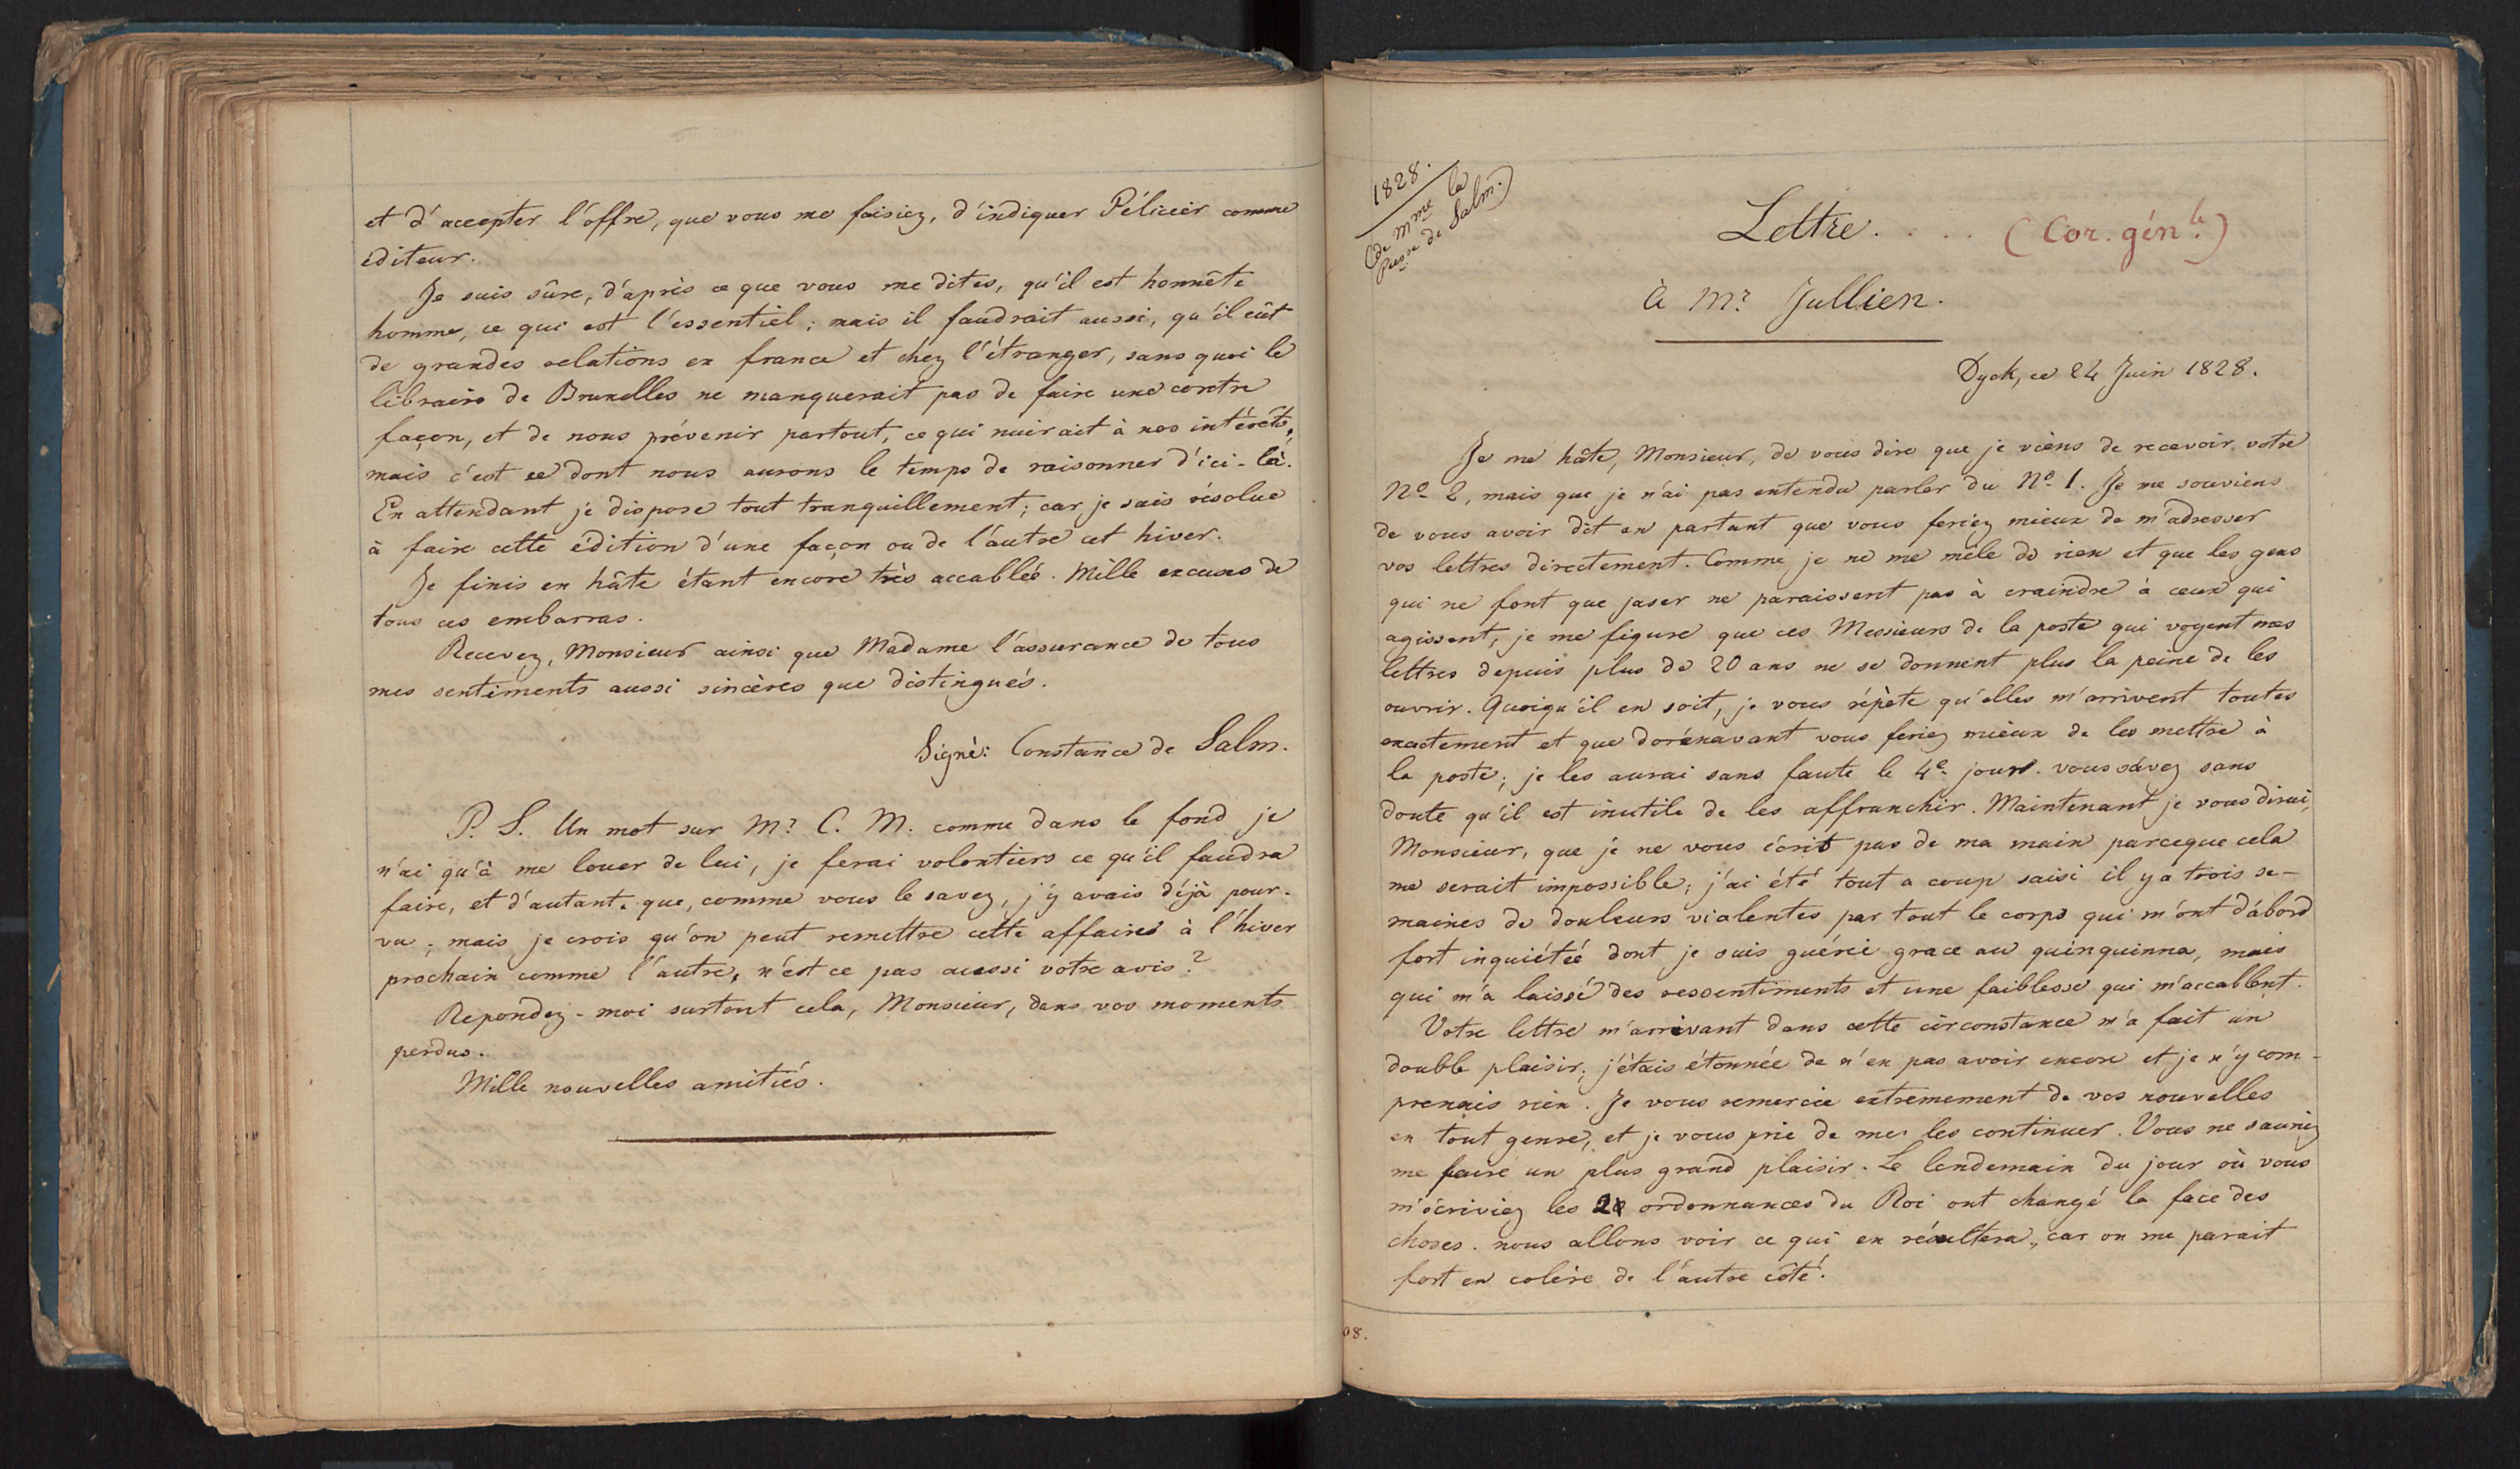 et d'accepter l'offre, que vous me faisiez, d'indiquer Pélicier comme
éditeur.
Je suis sûre, d'après ce que vous me dites, qu'il est honnête
homme, ce qui est l'essentiel ; mais il faudrait aussi, qu'il eût
de grandes relations en france et chez l'étranger, sans quoi le
libraire de Bruxelles ne manquerait pas de faire une contre
façon, et de nous prévenir partout, ce qui nuirait à nos intérêts,
mais c'est ce dont nous aurons le temps de raisonner d'ici-là.
En attendant je dispose tout tranquillement ; car je suis résolue
à faire cette édition d'une façon ou de l'autre cet hiver.
Je finis en hâte étant encore très accablée. Mille excuses de
tous ces embarras.
Recevez, Monsieur ainsi que Madame l'assurance de tous
mes sentiments aussi sincères que distingués.
Signé: Constance de Salm.
P. S. Un mot sur Mr. C. M. comme dans le fond je
n'ai qu'à me louer de lui, je ferai volontiers ce qu'il faudra
faire, et d'autant. que, comme vous le savez, j'y avais déjà pour-
vu ; mais je crois qu'on peut remettre cette affaire à l'hiver
prochain comme l'autre, n'est ce pas aussi votre avis ?
Repondez-moi surtout cela, Monsieur, dans vos moments
perdus.
Mille nouvelles amitiés.
1828.
(de Mme la
Psse de Salm.)
Lettre. . . . . (Cor. génle.)
à Mr. Jullien.
Dyck, ce 24 Juin 1828.
Je me hâte, Monsieur, de vous dire que je viens de recevoir votre
No. 2, mais que je n'ai pas entendu parler du No. 1. Je me souviens
de vous avoir dit en partant que vous feriez mieux de m'adresser
vos lettres directement. Comme je ne me mêle de rien et que les gens
qui ne font que jaser ne paraissent pas à craindre à ceux qui
agissent, je me figure que ces Messieurs de la poste qui voyent mes
lettres depuis plus de 20 ans ne se donnent plus la peine de les
ouvrir. Quoiqu'il en soit, je vous répète qu'elles m'arrivent toutes
exactement et que dorénavant vous feriez mieux de les mettre à
la poste ; je les aurai sans faute le 4e. jour. vous savez sans
doute qu'il est inutile de les affranchir. Maintenant je vous dirai,
Monsieur, que je ne vous écrit pas de ma main parceque cela
me serait impossible ; j'ai été tout a coup saisi il y a trois se-
maines de douleurs violentes par tout le corps qui m'ont d'abord
fort inquiétée dont je suis guérie grace au quinquinna, mais
qui m'a laissé des ressentiments et une faiblesse qui m'accablent.
Votre lettre m'arrivant dans cette circonstance m'a fait un
double plaisir ; j'étais étonnée de n'en pas avoir encore et je n'y com-
prenais rien. Je vous remercie extremement de vos nouvelles
en tout genre, et je vous prie de me les continuer. Vous ne sauriez
me faire un plus grand plaisir. Le lendemain du jour où vous
m'écriviez les 2 ordonnances du Roi ont changé la face des
choses. nous allons voir ce qui en résultera, car on me parait
fort en colère de l'autre côté.
08.